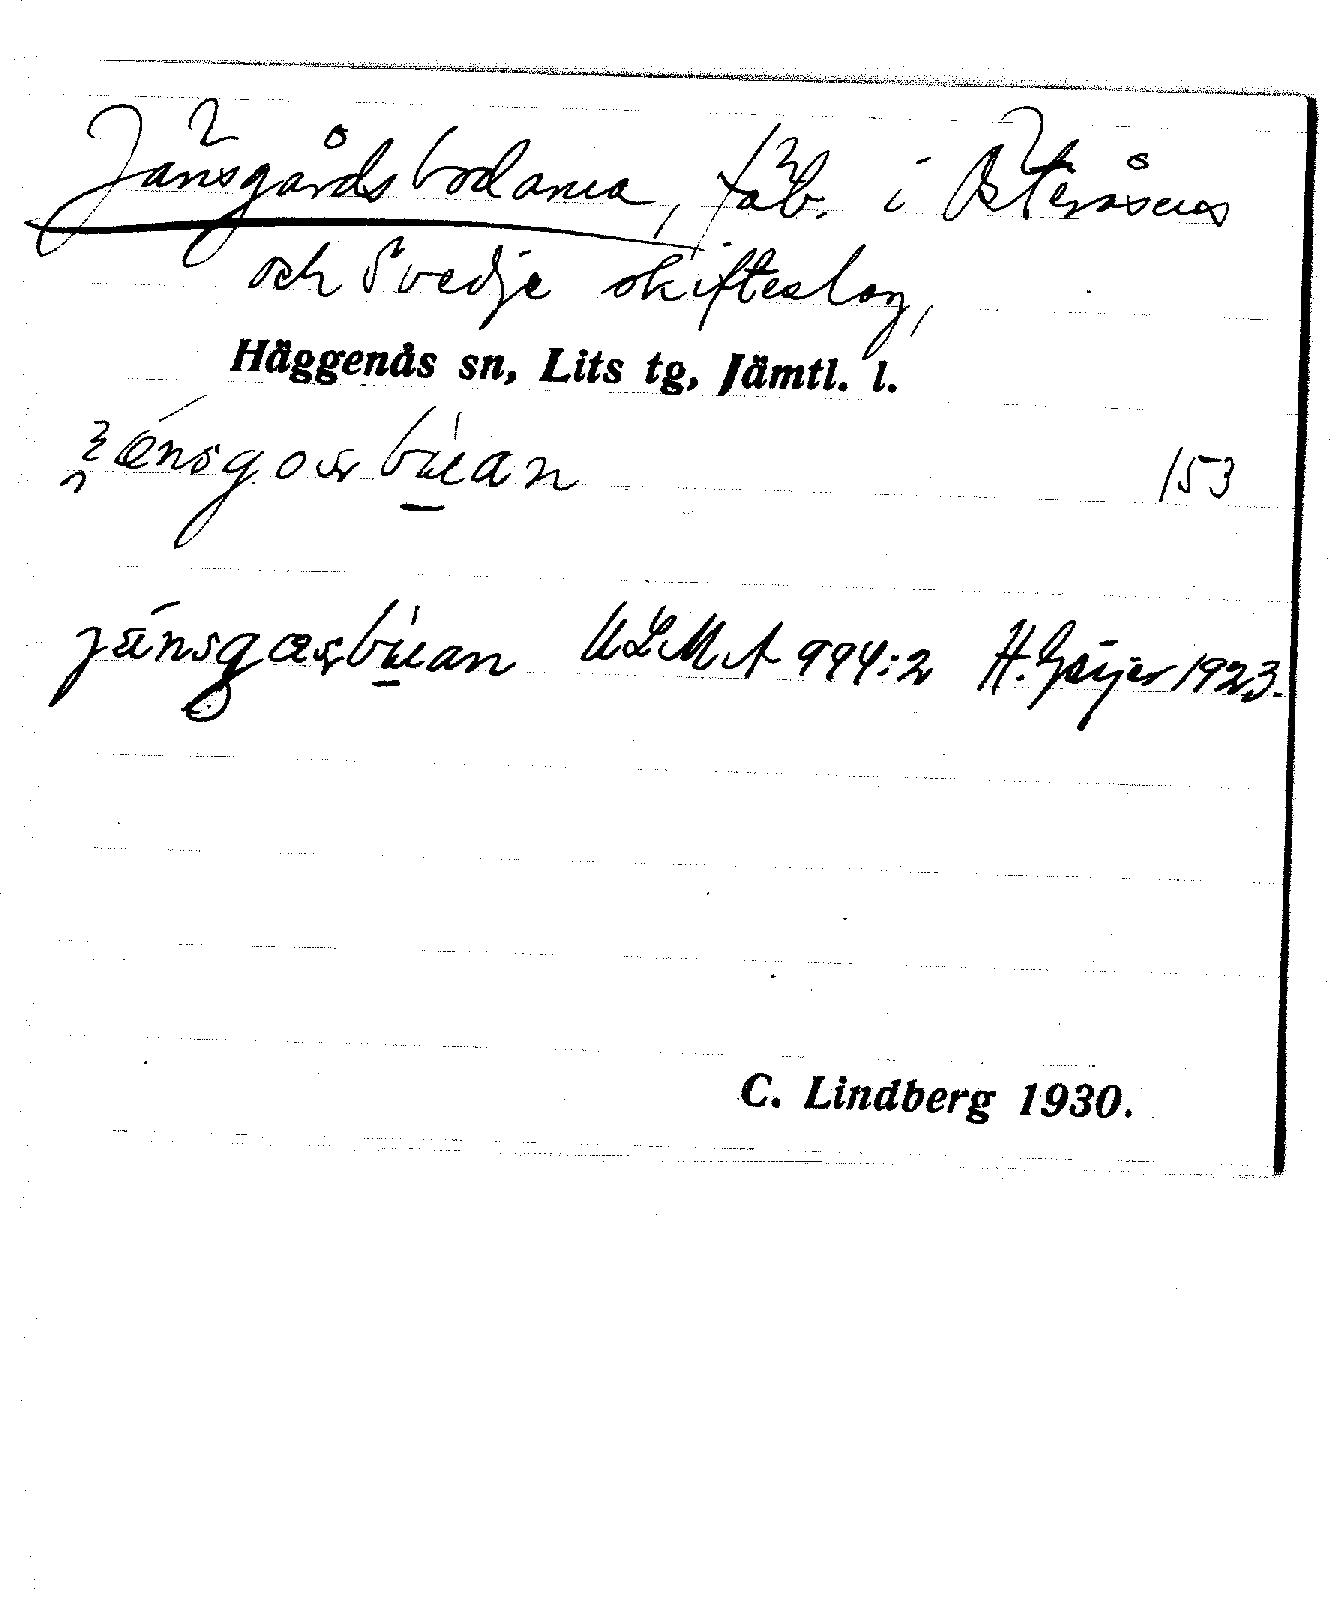 Jänsgårdsbodarna, fäb. i Österåsens
och Svedje skifteslag,
Häggenås sn, Lits tg, Jämtl. l.
153
ULMA 994:2 H. Geijer 1923.
C. Lindberg 1930.